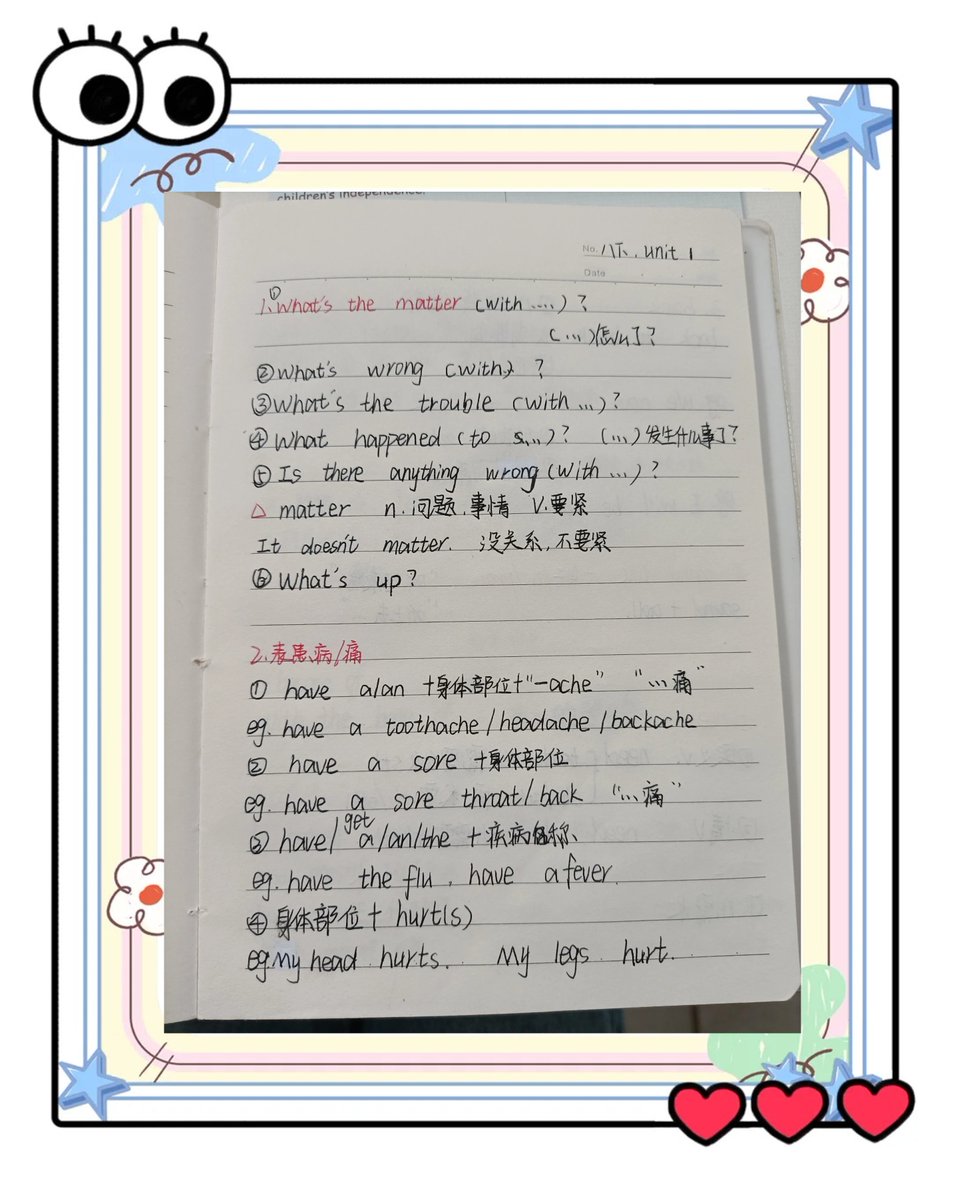 children's independence.
No. 八下. unit 1
Date
1.①What's the matter (with ....) ?
(...)怎么了?
②What's wrong (with) ?
③What's the trouble (with ...)?
④What happened (to s...)? (...)发生什么事了?
⑤Is there anything wrong (with ...) ?
△ matter n.问题.事情 V.要紧
It doesn't matter. 没关系,不要紧
⑥What's up?
2.表患病/痛
① have a/an +身体部位+"-ache" "...痛"
eg. have a toothache/headache/backache
② have a sore +身体部位
eg. have a sore throat/back "...痛"
③ have/get a/an/the + 疾病名称
eg. have the flu . have a fever.
④身体部位+ hurt(s)
eg.My head hurts. My legs hurt.